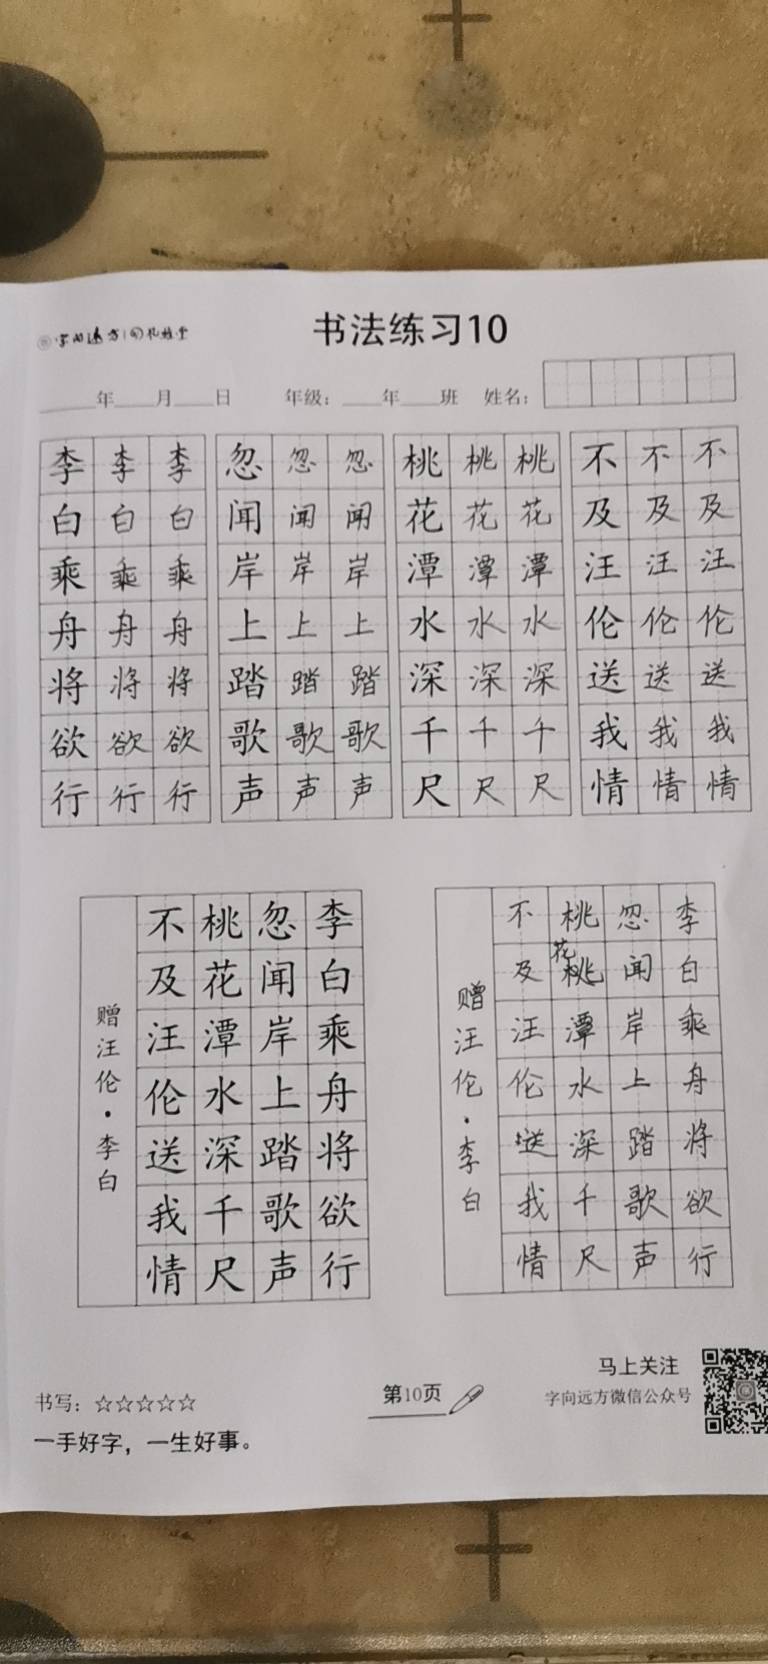 字向远方
书法练习10
年 月 日 年级： 年 班 姓名：
李 李 李 忽 忽 忽 桃 桃 桃 不 不 不
白 白 白 闻 闻 闻 花 花 花 及 及 及
乘 乘 乘 岸 岸 岸 潭 潭 潭 汪 汪 汪
舟 舟 舟 上 上 上 水 水 水 伦 伦 伦
将 将 将 踏 踏 踏 深 深 深 送 送 送
欲 欲 欲 歌 歌 歌 千 千 千 我 我 我
行 行 行 声 声 声 尺 尺 尺 情 情 情
李白乘舟将欲行
忽闻岸上踏歌声
桃花潭水深千尺
不及汪伦送我情
赠汪伦·李白
李白乘舟将欲行
忽闻岸上踏歌声
桃花桃潭水深千尺
不及汪伦送我情
赠汪伦·李白
书写：☆☆☆☆☆
一手好字，一生好事。
第10页
马上关注
字向远方微信公众号